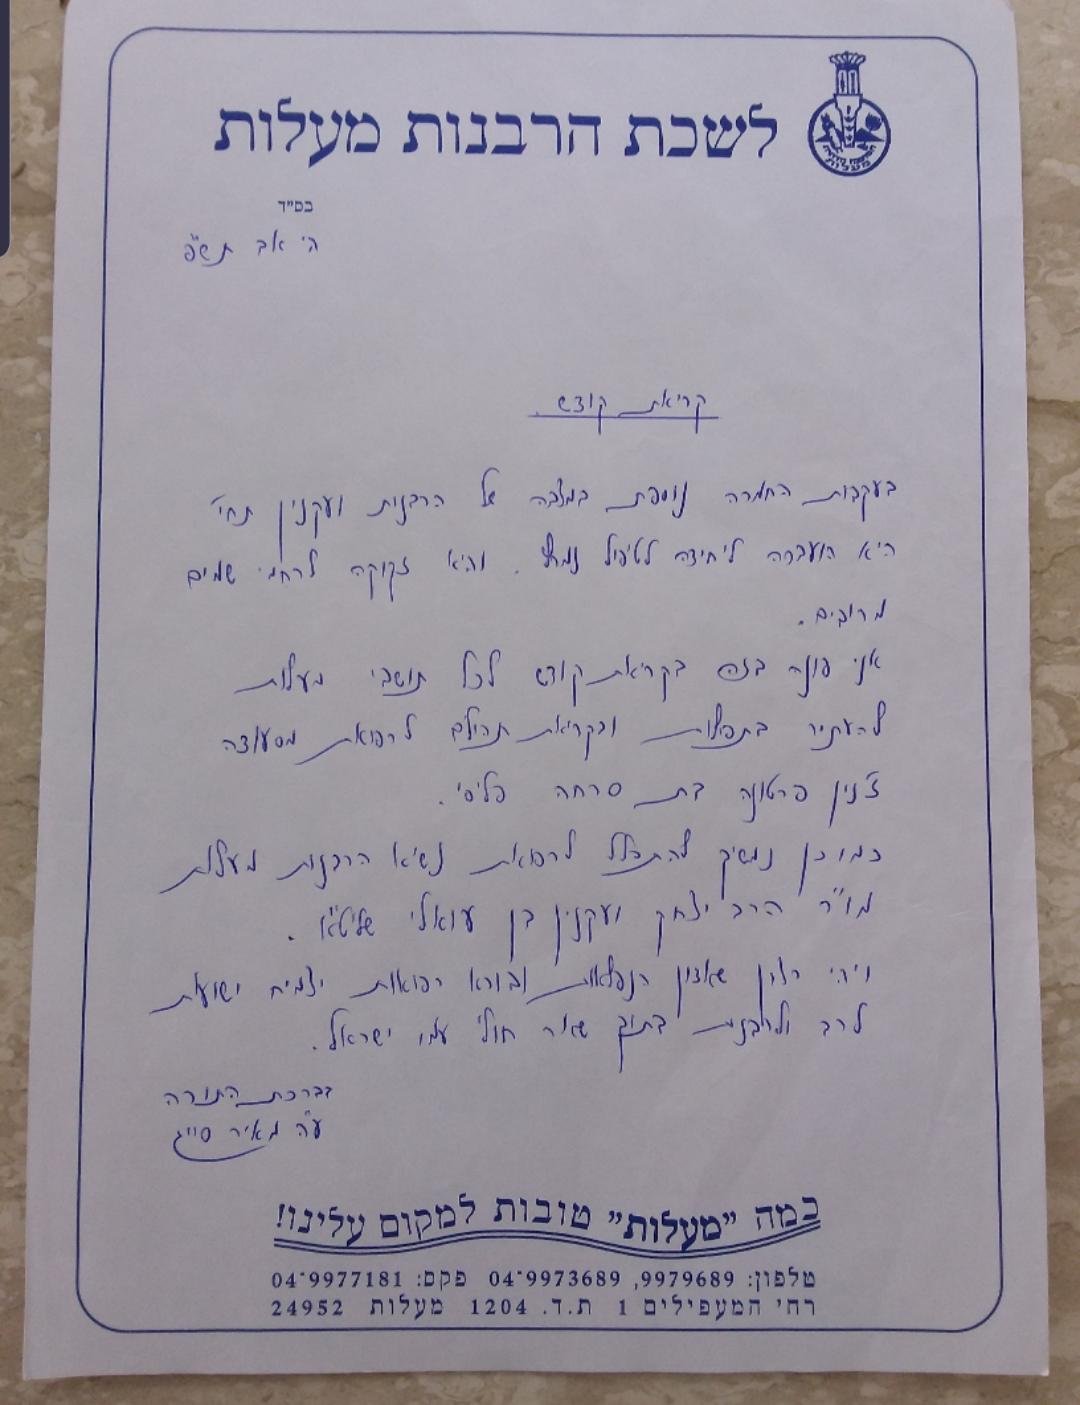 לשכת הרבנות מעלות
בס"ד
ה' אב תש"פ
קריאת קודש.
בעקבות החמרה נוספת במצבה של הרבנית ועקנין תחי'
היא הועברה ליחידה לטיפול נמרץ. והיא זקוקה לרחמי שמים
מרובים.
אני פונה בזה בקריאת קודש לכל תושבי מעלות
להעתיר בתפילות ובקריאת תהילים לרפואת מסעודה
ז'נין פרטונה בת סרחה פליסי.
כמו כן נמשיך להתפלל לרפואת נשיא הרבנות מעלות
מו"ר הרב יצחק ועקנין בן עואלי שליט"א.
ויהי רצון שאדון הנפלאות ובורא רפואות יצמיח ישועת
לרב ולרבנית בתוך שאר חולי עמו ישראל.
בברכת התורה
ע"ה מאיר סייג
כמה "מעלות" טובות למקום עלינו!
טלפון: 9979689, 04-9973689 פקס: 04-9977181
רח' המעפילים 1 ת.ד. 1204 מעלות 24952